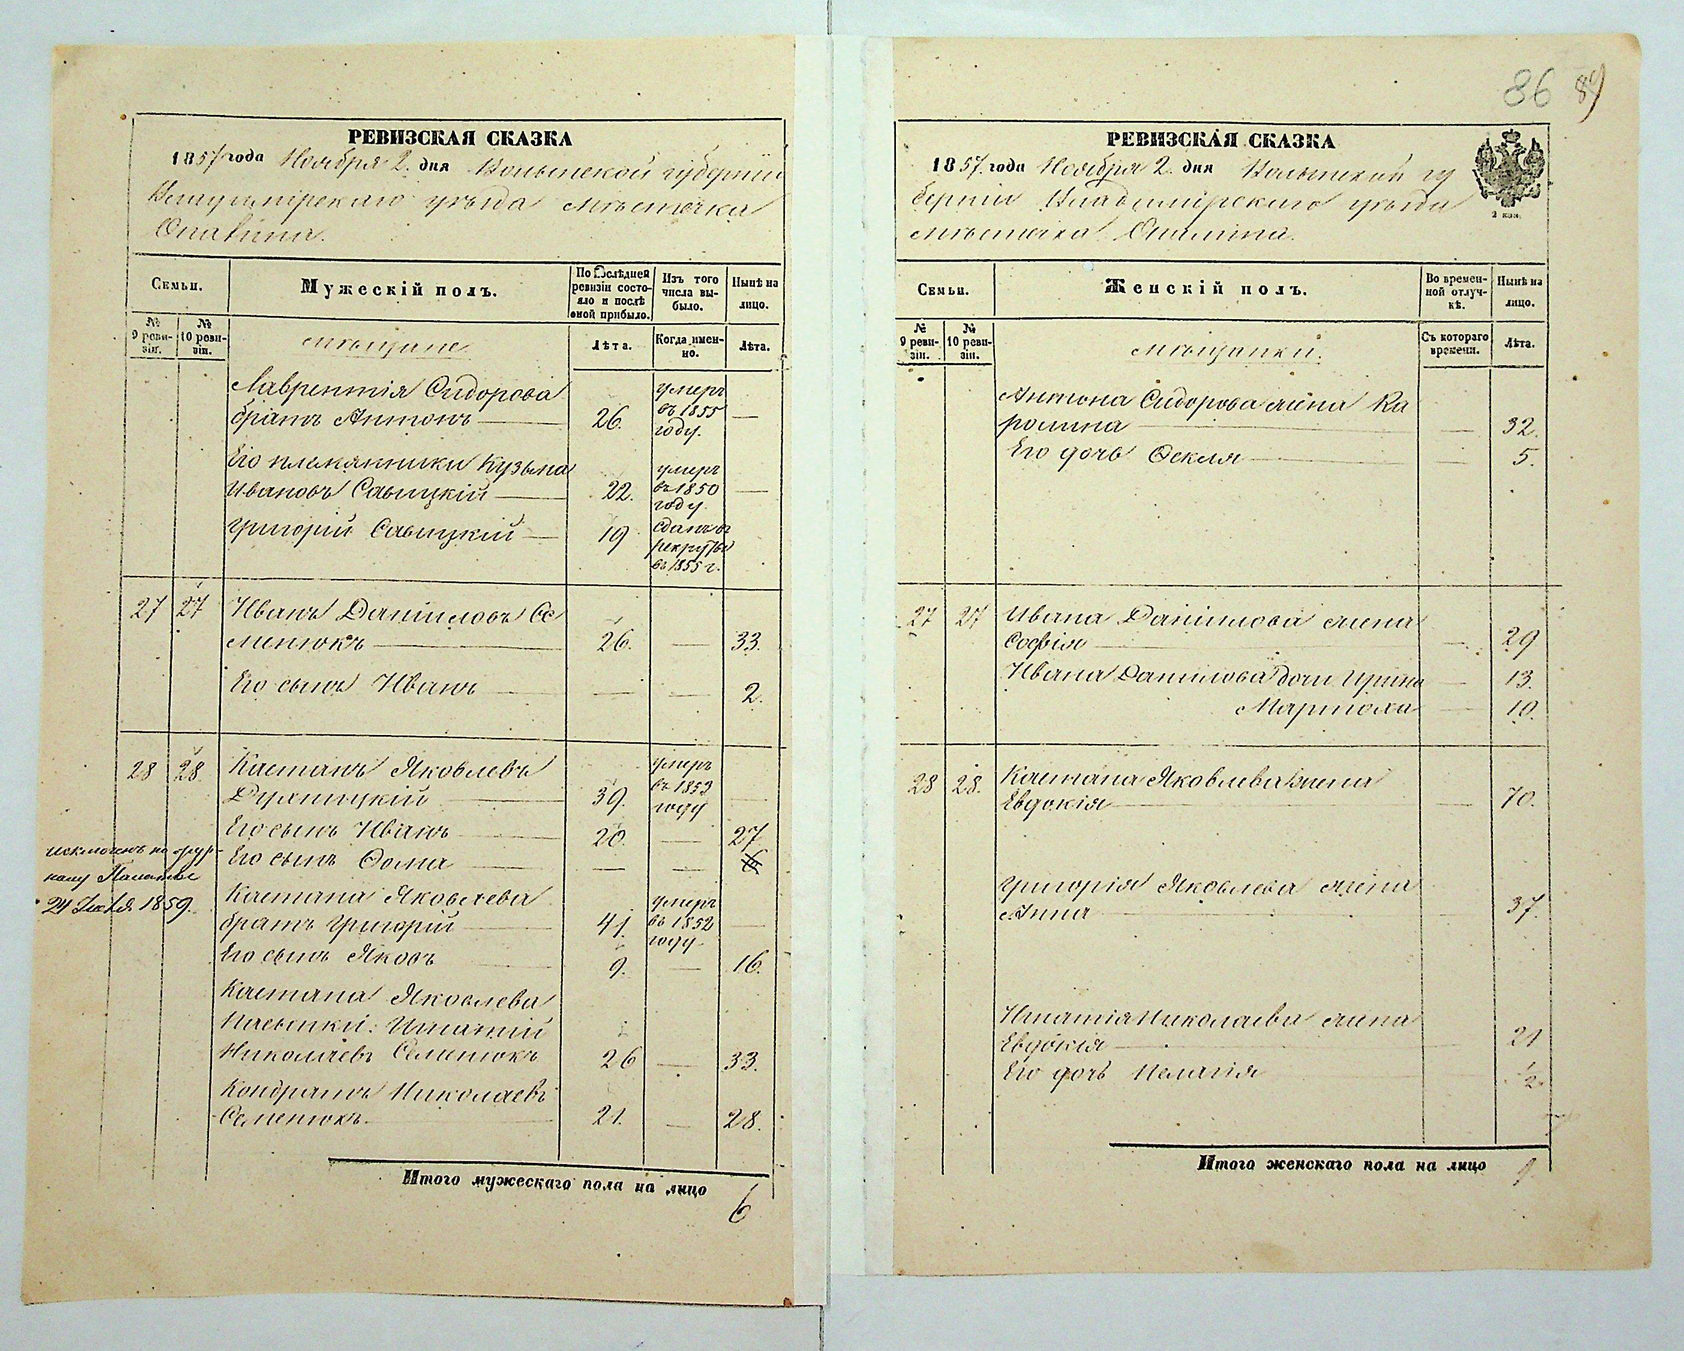 РЕВИЗСКАЯ СКАЗКА
1857 года Ноября 2. дня Волынской губернии
Владимірскаго уѣзда мѣстечка
Опалина.
Семьи.
Мужескій полъ.
По послѣдней ревизіи состояло и послѣ оной прибыло.
Изъ того числа выбыло.
Нынѣ на лицо.
№ 9 ревизіи.
№ 10 ревизіи.
мѣщане
Лѣта.
Когда именно.
Лѣта.
Лаврентія Сидорова
братъ Антонъ 26. умеръ въ 1855 году. —
Его племянники Кузьма
Ивановъ Савицкій 22. умеръ въ 1850 году. —
Григорій Савицкій 19 сданъ въ рекруты въ 1855 г.
27 27 Иванъ Даниловъ Се
менюкъ 26. — 33.
Его сынъ Иванъ — — 2.
28 28 Каетанъ Яковлевъ
39. умеръ въ 1853 году —
Его сынъ Иванъ 20. — 27
Его сынъ Ѳома — — 6
исключенъ по
24 1859.
Каетана Яковлева
братъ Григорій 41. умеръ въ 1852 году —
Его сынъ Яковъ 9. — 16.
Каетана Яковлева
Игнатій
Николаевъ Семенюкъ 26 — 33.
Кондратъ Николаевъ
Семенюкъ 21. — 28.
Итого мужескаго пола на лицо 6
86 89
РЕВИЗСКАЯ СКАЗКА
1857. года Ноября 2. дня Волынской гу
берніи Владимірскаго уѣзда
мѣстечка Опалина.
2 коп.
Семьи.
Женскій полъ.
Во временной отлучкѣ.
Нынѣ на лицо.
№ 9 ревизіи.
№ 10 ревизіи.
мѣщанки.
Съ котораго времени.
Лѣта.
Антона Сидорова жена Ка
ролина — 32.
Его дочь Ѳекля — 5.
27 27 Ивана Данилова жена
Софія — 29
Ивана Данилова дочи Ирина — 13.
Марцеля — 10.
28 28. Каетана Яковлева жена
Евдокія — 70.
Григорія Яковлева жена
Анна 37.
Игнатія Николаева жена
Евдокія 21
Его дочь Пелагія 1/2.
Итого женскаго пола на лицо 9